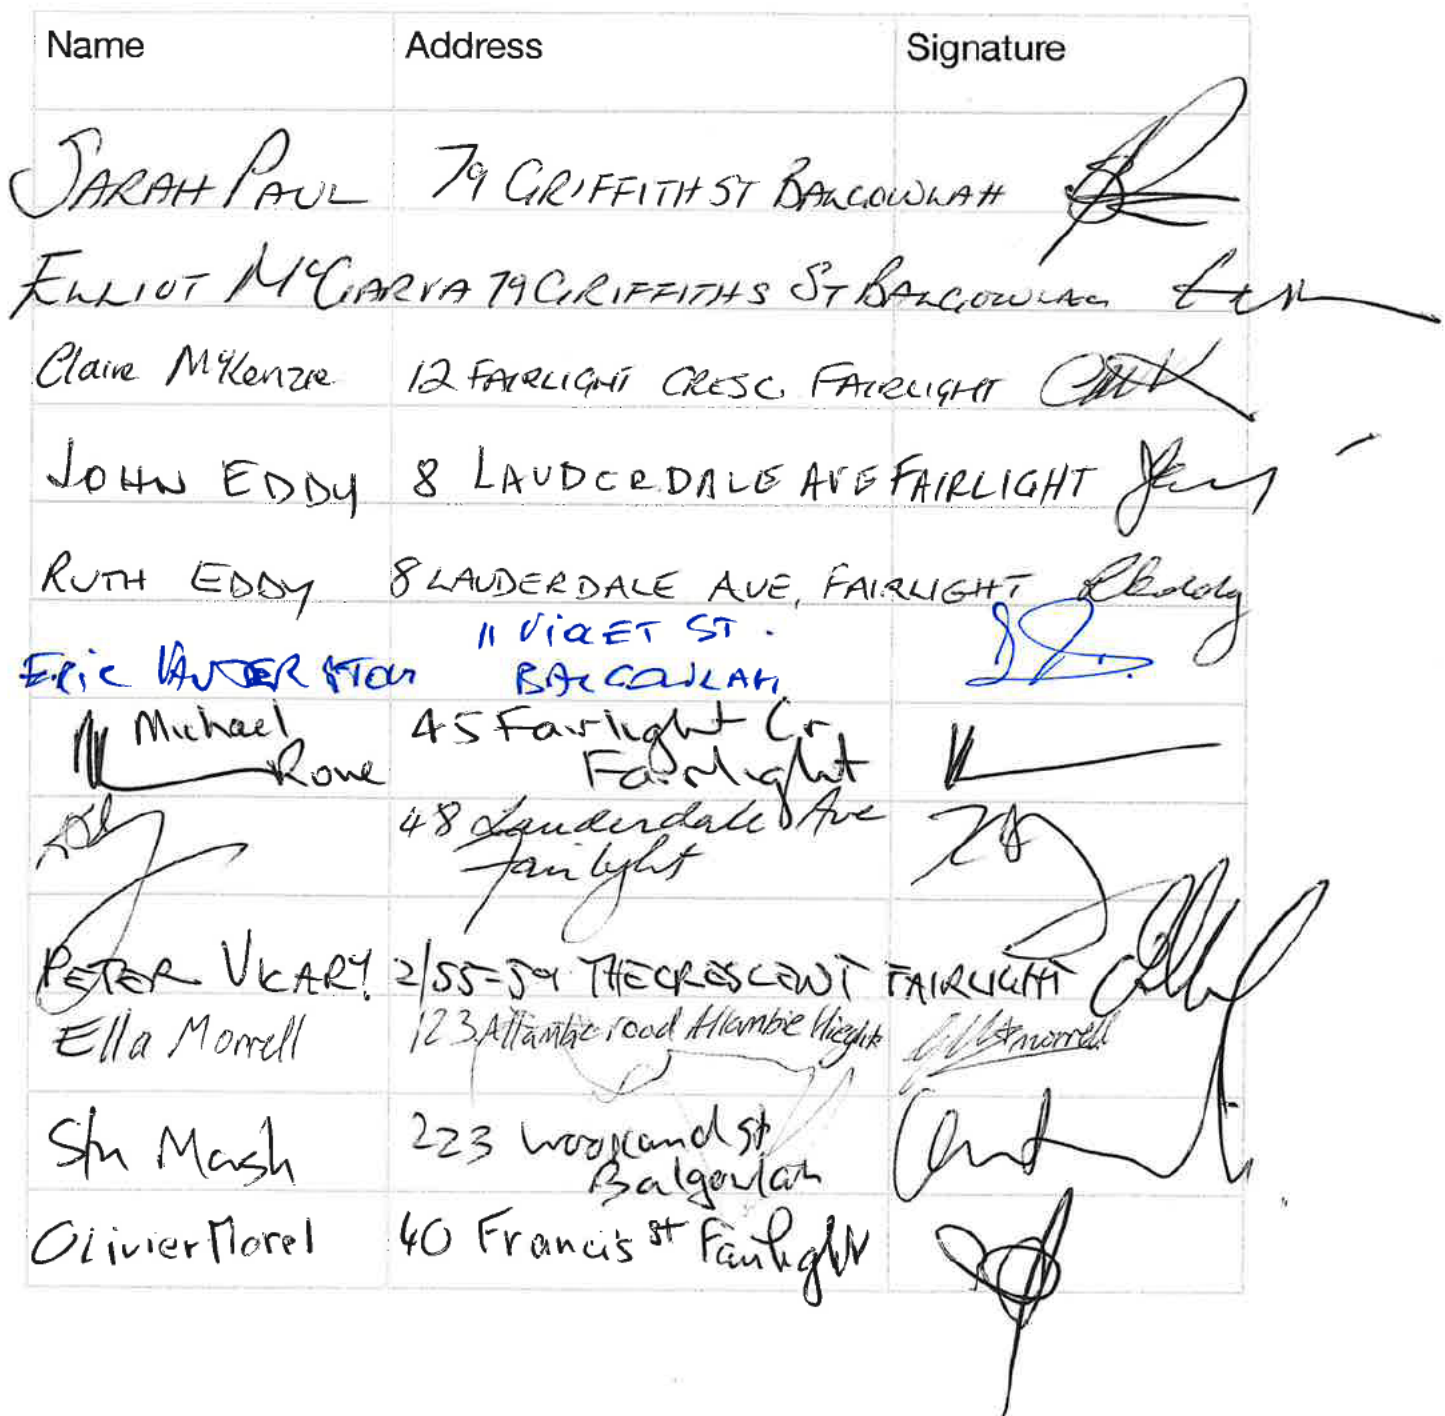 Name Address Signature
SARAH PAUL 79 GRIFFITH ST BALGOWLAH
ELLIOT McGARVA 79 GRIFFITHS ST BALGOWLAH
Claire McKenzie 12 FAIRLIGHT CRESC. FAIRLIGHT
JOHN EDDY 8 LAUDERDALE AVE FAIRLIGHT
RUTH EDDY 8 LAUDERDALE AVE, FAIRLIGHT REddy
11 VIOLET ST.
ERIC BALGOWLAH
Michael 45 Fairlight Cr
Rowe Fairlight
48 Lauderdale Ave
Fairlight
PETER VICARY 2/55-59 THE CRESCENT FAIRLIGHT
Ella Morrell 123 Allambie road Allambie Hieghts
Marsh 223 Woodland st
Balgowlah
Olivier Morel 40 Francis st Fairlight